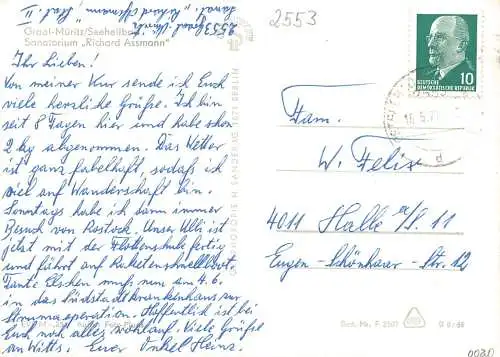 2553 Graal-Müritz
Sanat. "Richard Assmann", Haus II
Graal-Müritz/Seeheilbad
Sanatorium „Richard Assmann"
Ihr Lieben!
Von meiner Kur sende ich Euch
viele herzliche Grüße. Ich bin
seit 8 Tagen hier und habe schon
2 kg abgenommen. Das Wetter
ist ganz fabelhaft, sodaß ich
viel auf Wanderschaft bin.
Sonntags habe ich dann immer
Besuch von Rostock. Unser Ulli ist
jetzt mit der Flottenschule fertig
und fährt auf Raketenschnellboot.
Tante Elschen muß nun am 4.6.
in das Südstadtkrankenhaus zur
Strumaoperation. Hoffentlich ist bei
Euch noch alles wohlauf. Viele Grüße
an Witts. Euer Onkel Heinz.
2553
DEUTSCHE
DEMOKRATISCHE REPUBLIK
10
d
Fam.
W. Felix
4011 Halle a/S. 11
Eugen-Schönhaar-Str. 12
Best.-Nr. F 2501
G 9/68